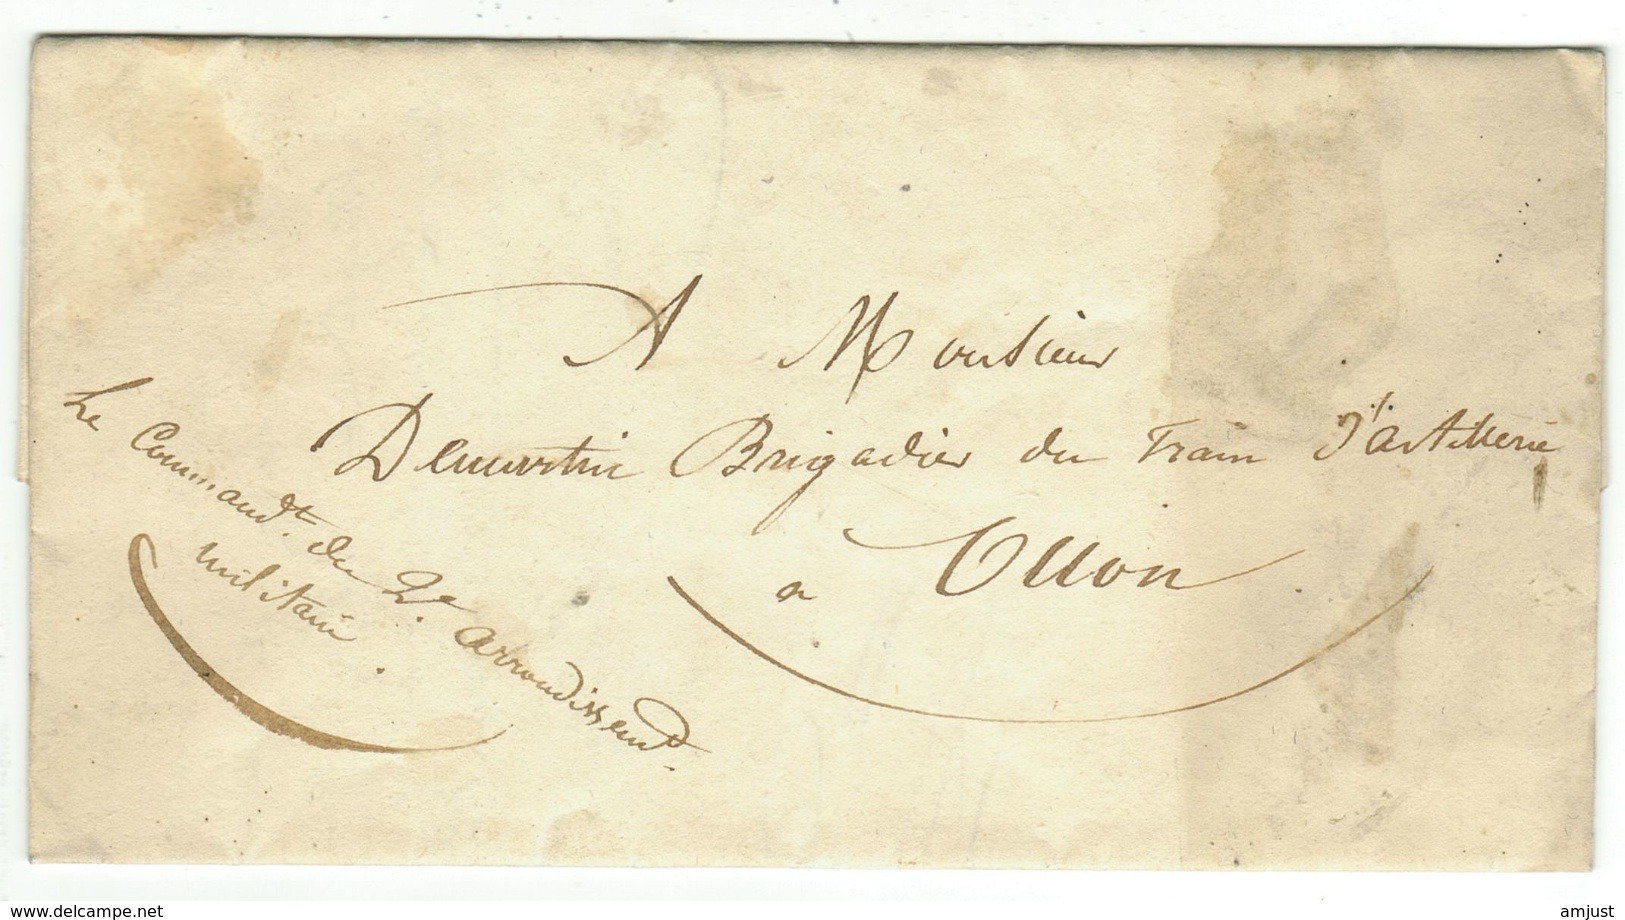 A Monsieur
Demartin Brigadier du Train d'artillerie
a Ollon
Le Command.t du 2.e arrondissem.t
militaire.
www.delcampe.net
amjust